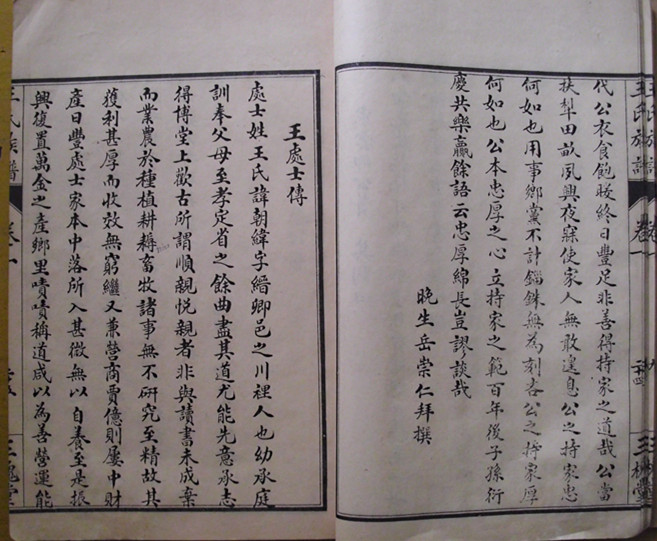 王氏族譜
卷一
三槐堂
代公衣食飽暖終日豐足非善得持家之道哉公當
扶犁田畝夙興夜寐使家人無敢遑息公之持家忠
何如也用事鄉黨不計錙銖無為刻吝公之持家厚
何如也公本忠厚之心立持家之範百年後子孫衍
慶共樂贏餘語云忠厚綿長豈謬談哉
晚生岳崇仁拜撰
王處士傳
處士姓王氏諱朝緯字縉卿邑之川裡人也幼承庭
訓奉父母至孝定省之餘曲盡其道尤能先意承志
得博堂上歡古所謂順親悅親者非與讀書未成棄
而業農於種植耕耨畜牧諸事無不研究至精故其
獲利甚厚而收效無窮繼又兼營商賈億則屢中財
產日豐處士家本中落所入甚微無以自養至是振
興復置萬金之產鄉里嘖嘖稱道咸以為善營運能
王氏族譜
卷一
三槐堂